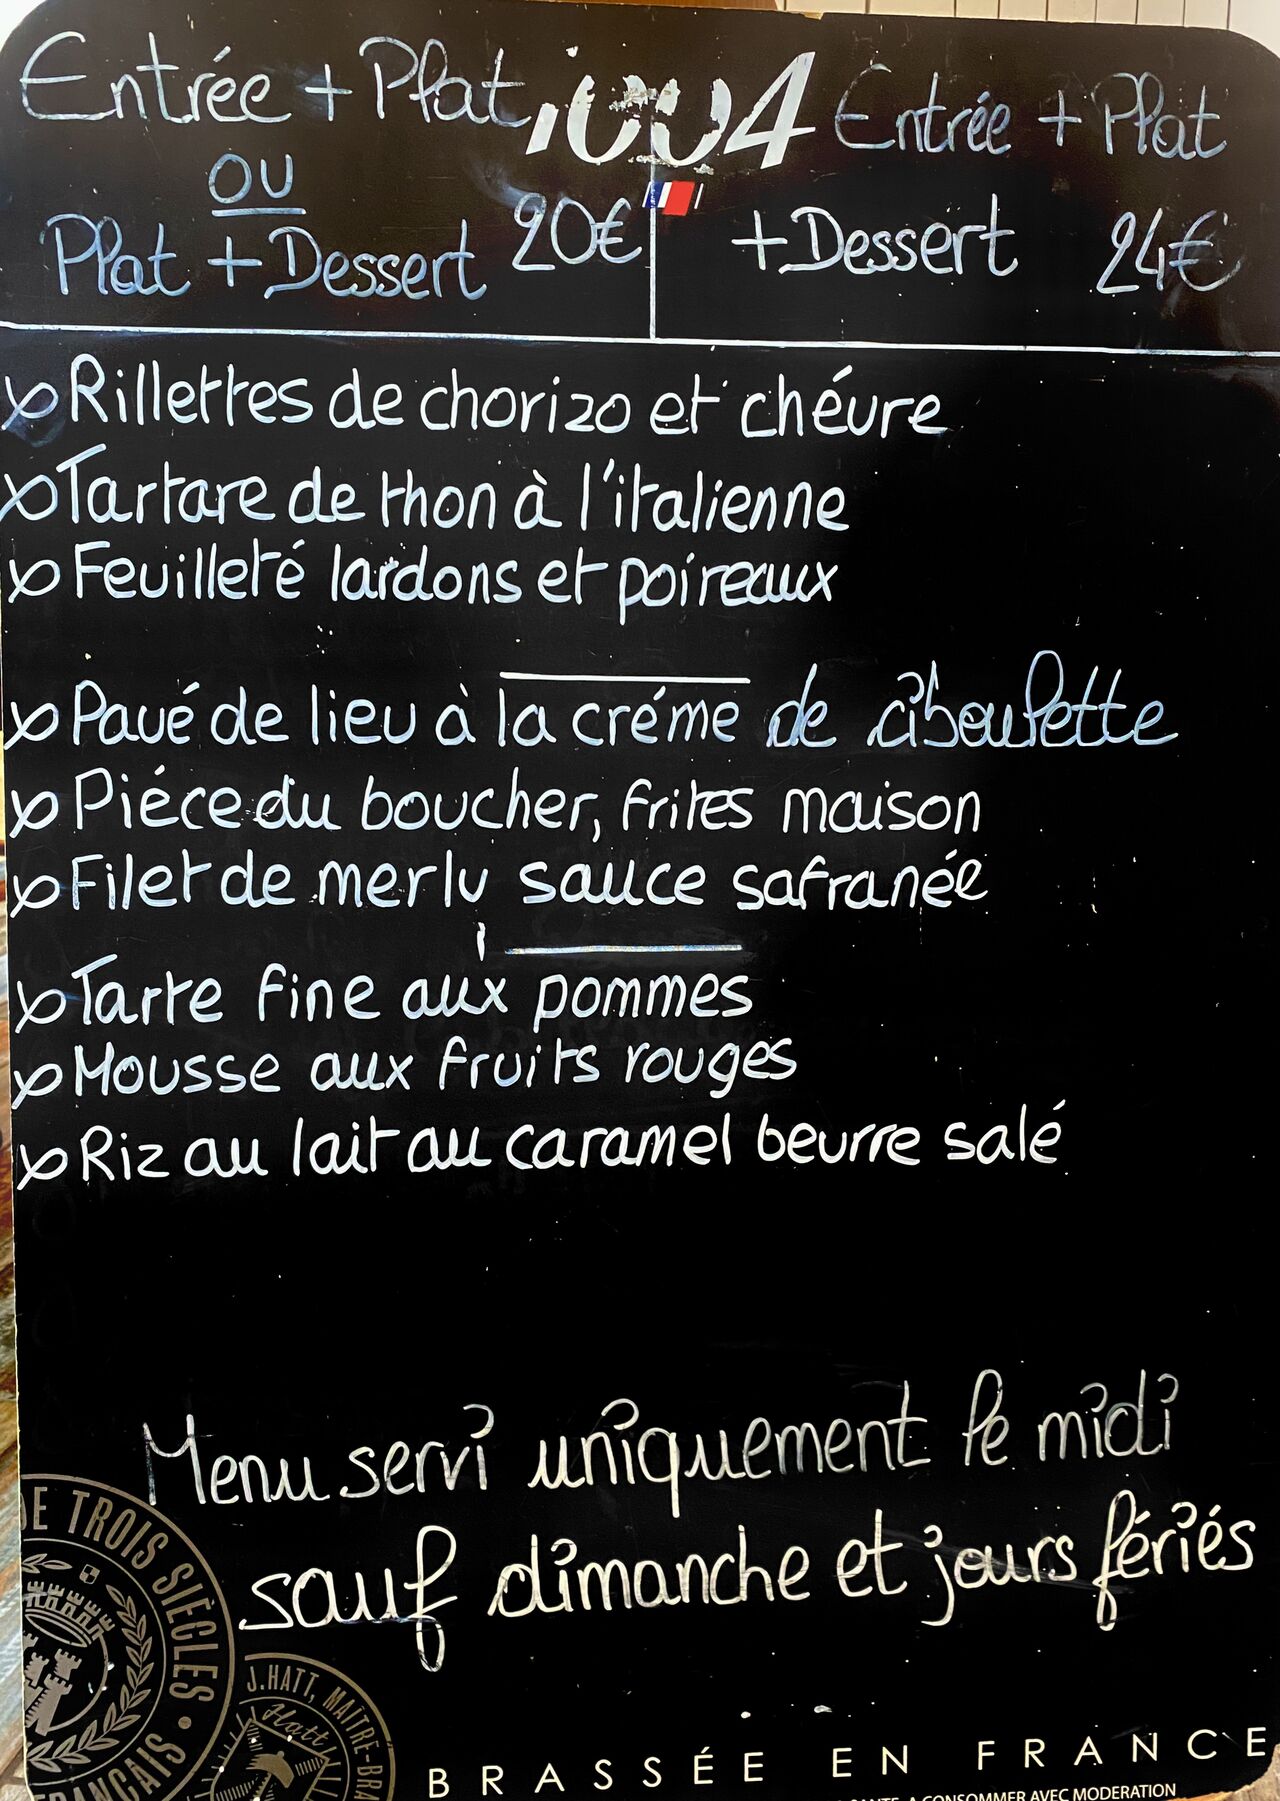 Entrée + Plat
ou
Plat + Dessert 20€
Entrée + Plat
+ Dessert 24€
Rillettes de chorizo et chévre
Tartare de thon à l'italienne
Feuilleté lardons et poireaux
Pavé de lieu à la créme de ciboulette
Piéce du boucher, frites maison
Filet de merlu sauce safranée
Tarte fine aux pommes
Mousse aux fruits rouges
Riz au lait au caramel beurre salé
Menu servi uniquement le midi
sauf dimanche et jours fériés
DE TROIS SIÈCLES •
J.HATT, MAÎTRE-BRA
Hatt
BRASSÉE EN FRANCE
A CONSOMMER AVEC MODERATION